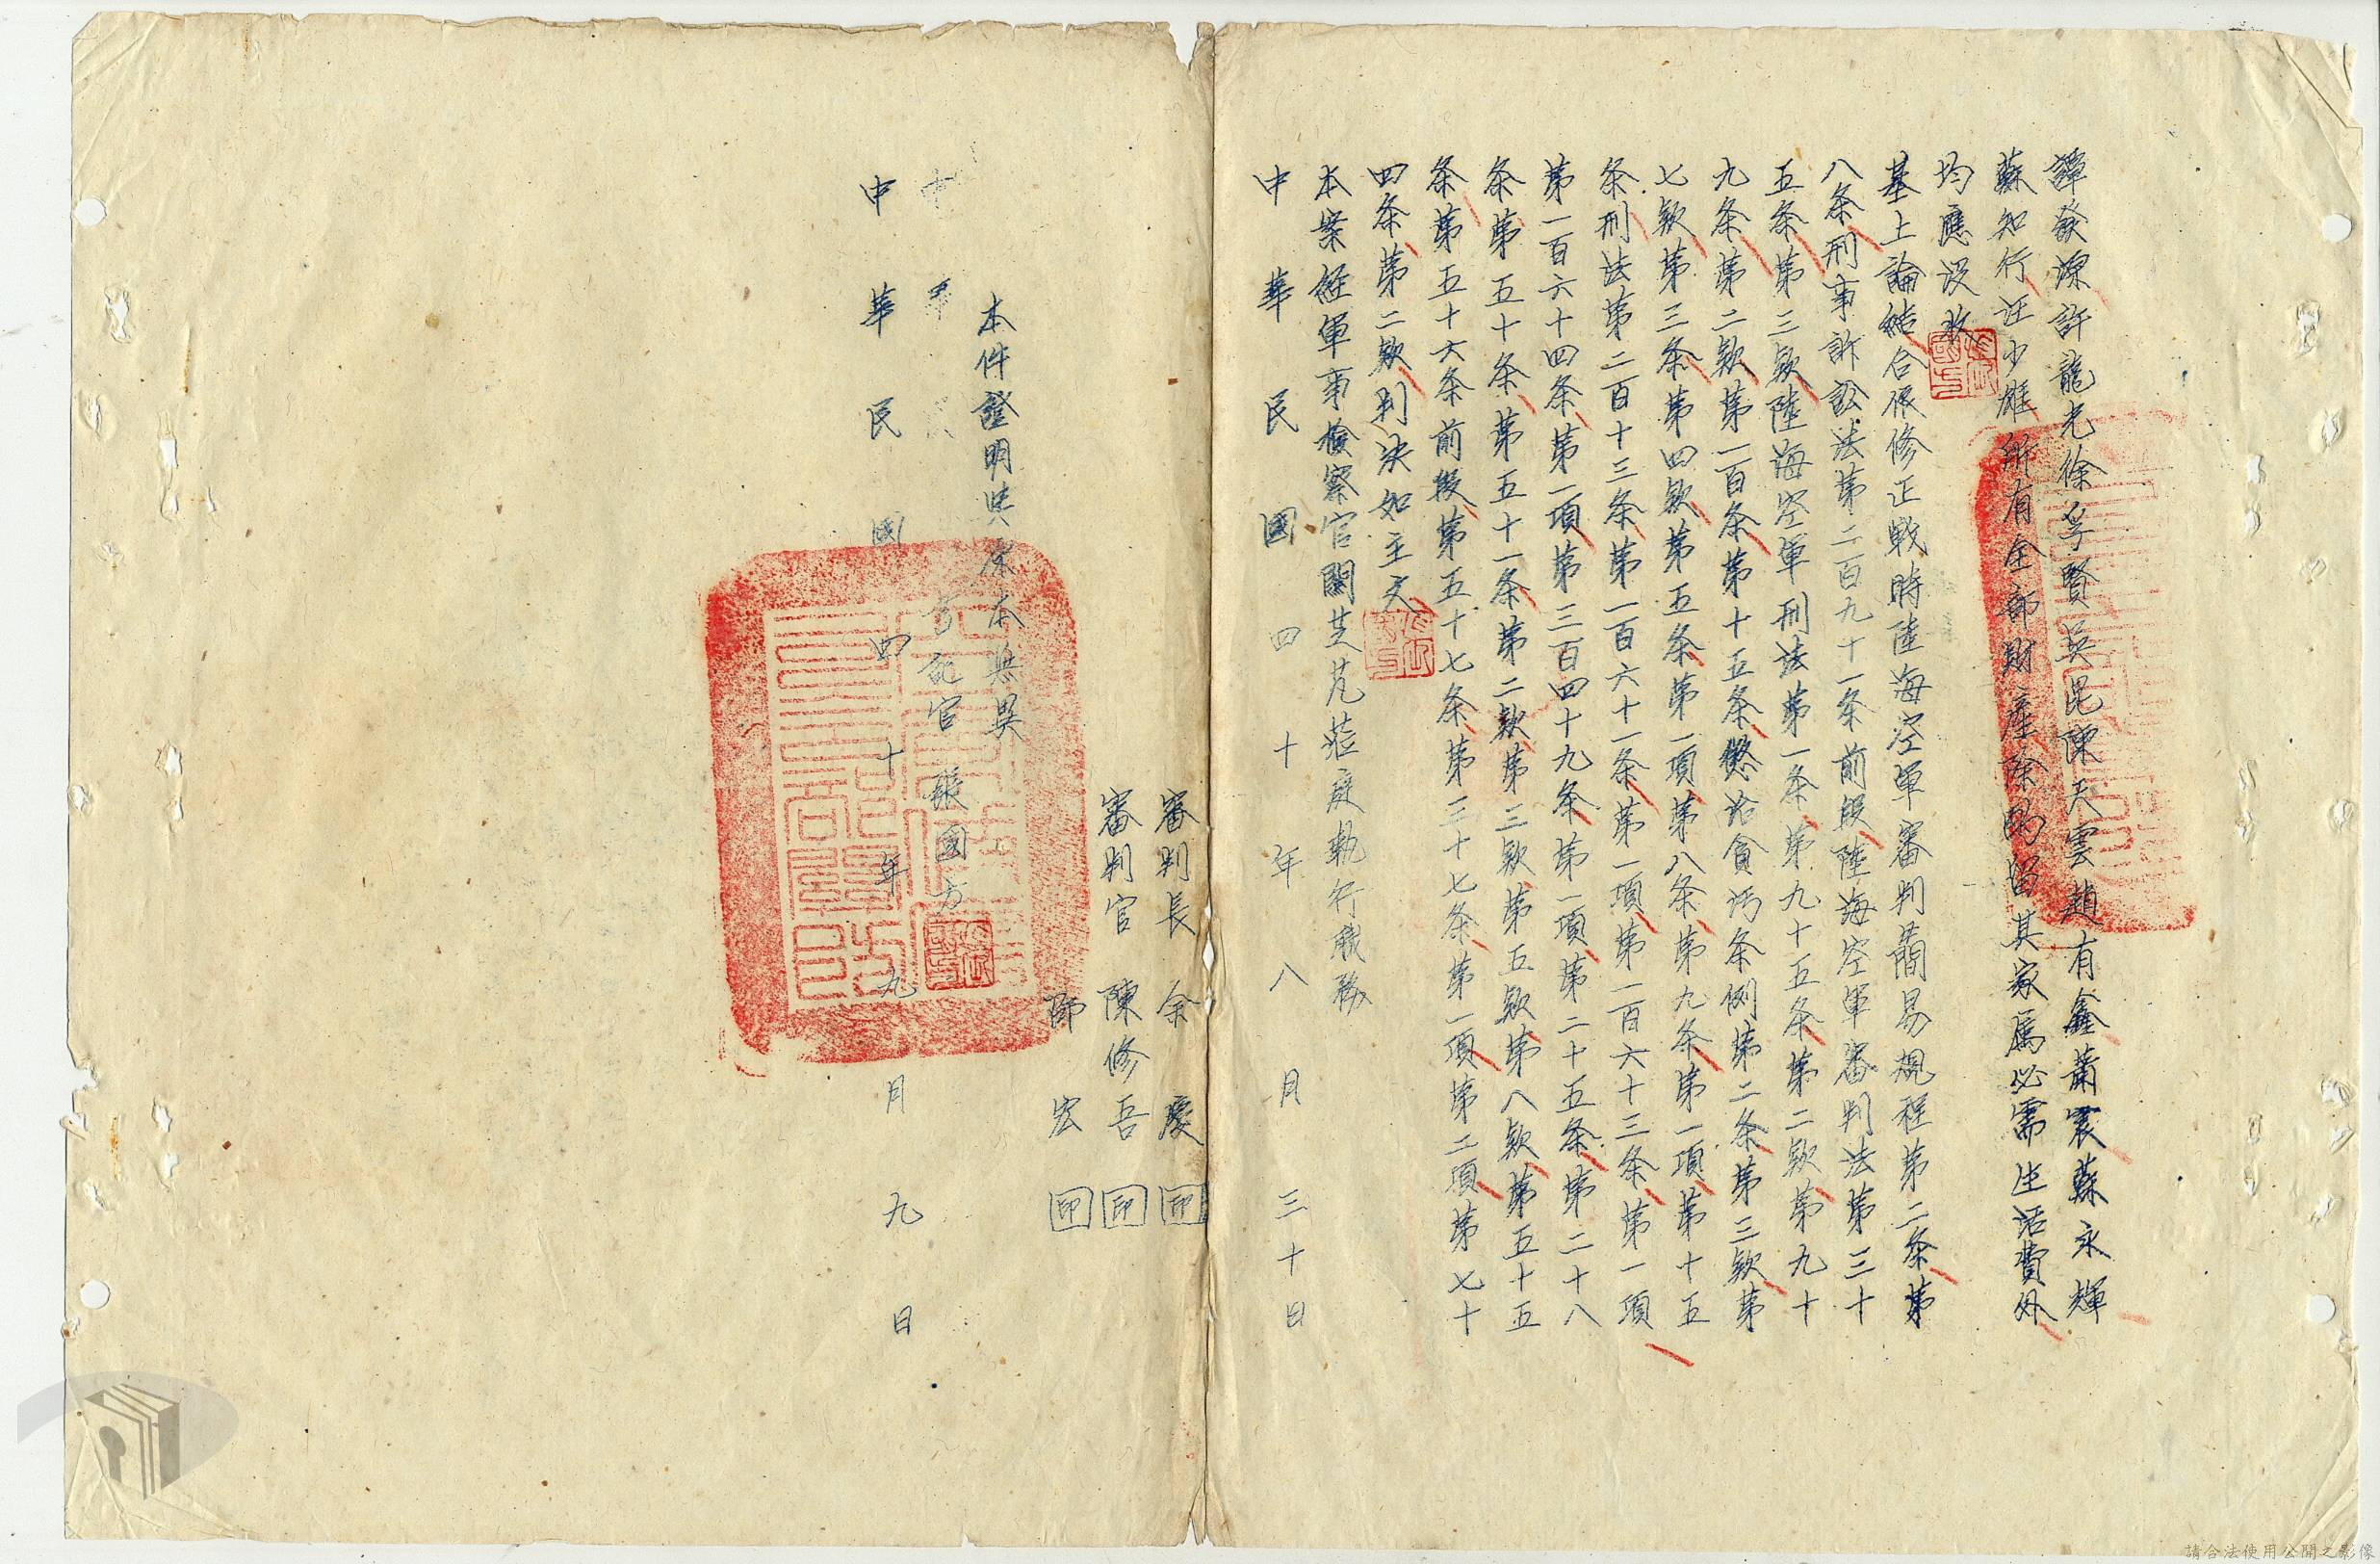 譚發源許龍光徐學賢吳昆陳天雲趙有鑫蕭震蘇永輝
蘇知行汪少雄所有全部財產除酌留其家屬必需生活費外
均應沒收
基上論結合依修正戰時陸海空軍審判簡易規程第二条第
八条刑事訴訟法第二百九十一条前段陸海空軍審判法第三十
五条第三欵陸海空軍刑法第一条第九十五条第二欵第九十
九条第二欵第一百条第十五条懲治貪污条例第二条第三欵第
七欵第三条第四欵第五条第一項第八条第九条第一項第十五
条刑法第二百十三条第一百六十一条第一項第一百六十三条第一項
第一百六十四条第一項第三百四十九条第一項第二十五条第二十八
条第五十条第五十一条第二欵第三欵第五欵第八欵第五十五
条第五十六条前段第五十七条第三十七条第一項第二項第七十
四条第二欵判決如主文
本案經軍事檢察官關芝芃蒞庭執行職務
中華民國四十年八月三十日
審判長 余慶 印
審判官 陳修吾 印
師宏 印
本件證明與原本無異
書記官 張國方
中華民國四十年九月九日
請合法使用公開之影像